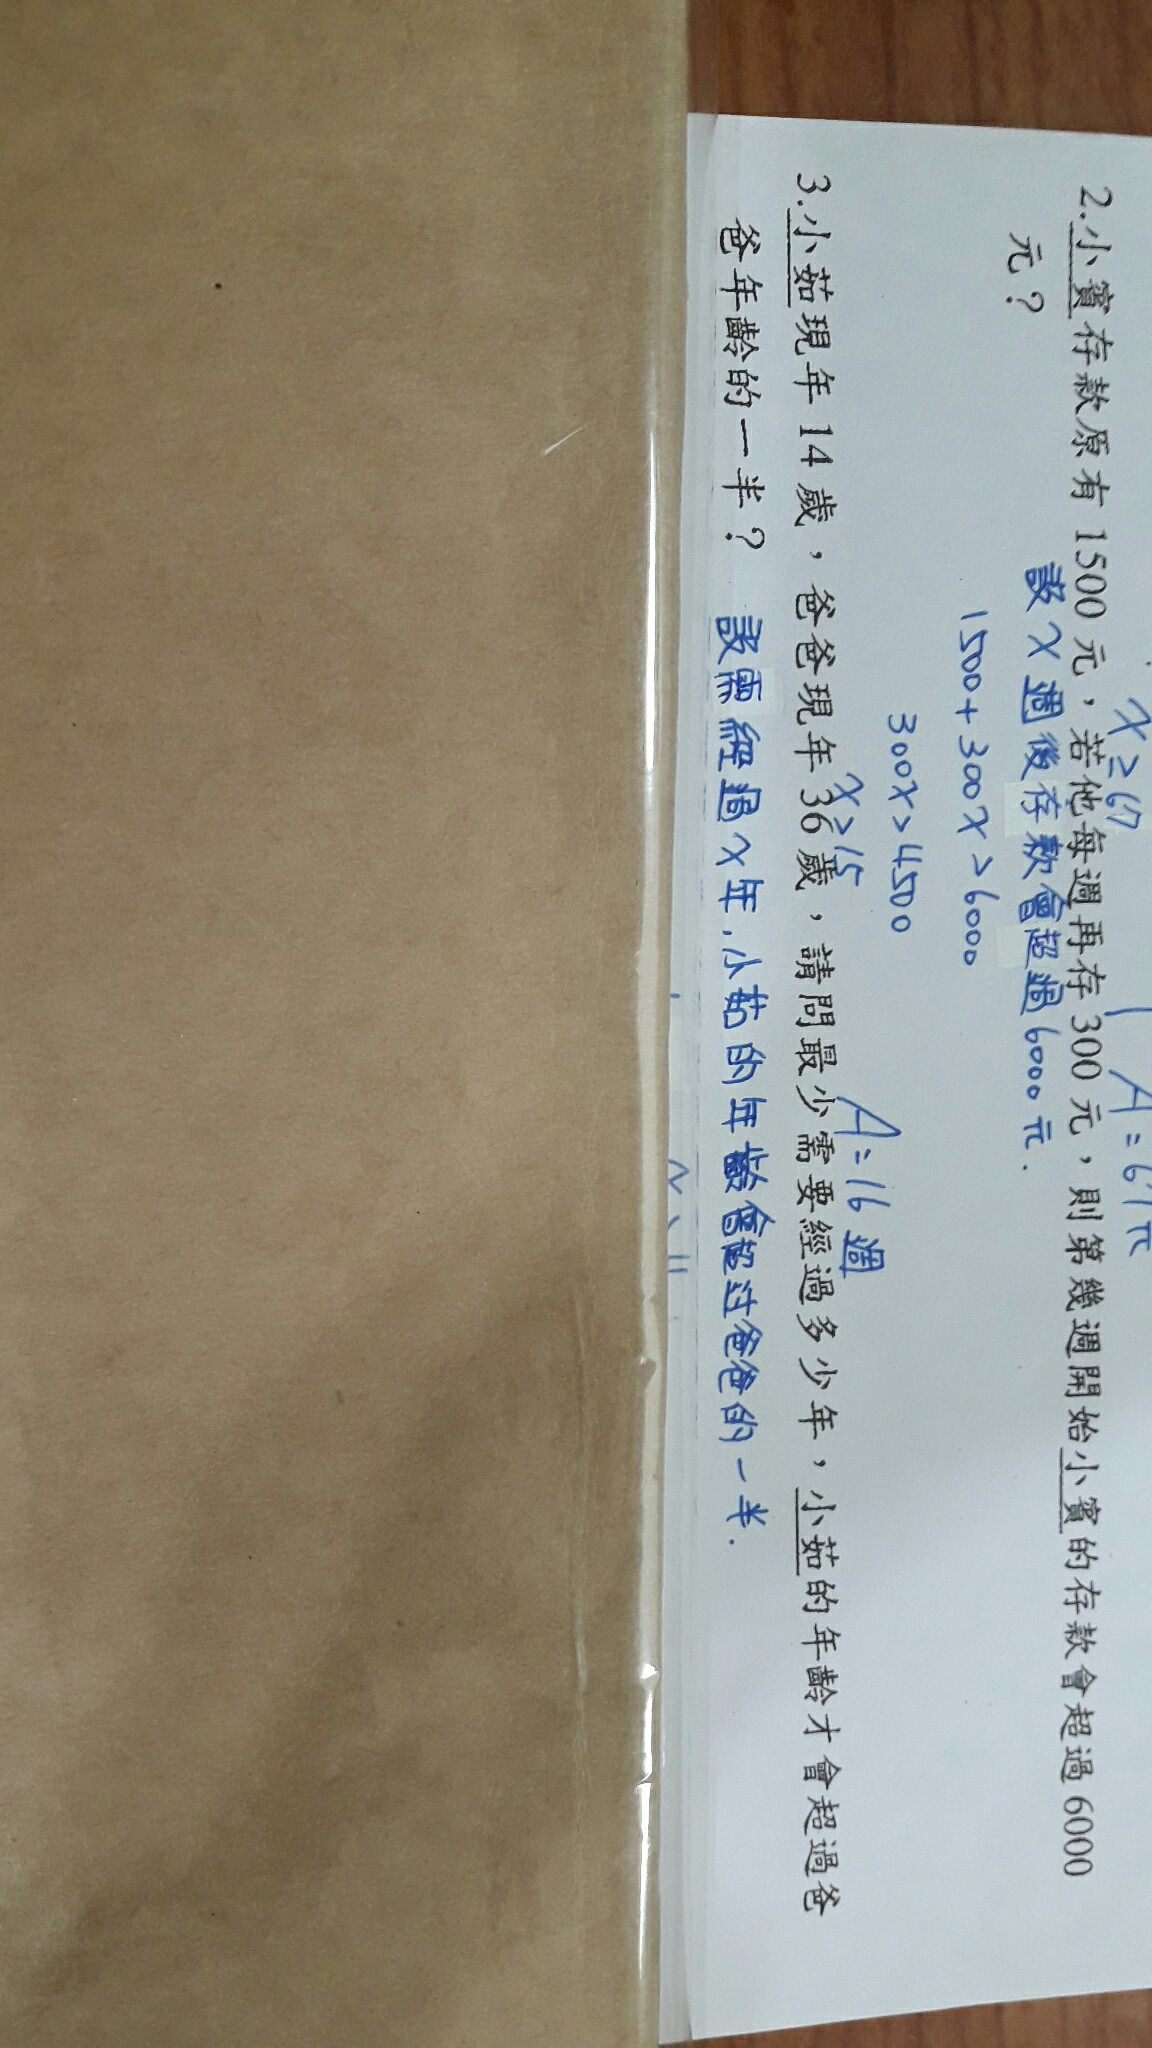 x≥67
A=67元
2.小賓存款原有1500元，若他每週再存300元，則第幾週開始小賓的存款會超過6000
元？
設x週後存款會超過6000元.
1500+300x>6000
300x>4500
x>15
A=16週
3.小茹現年14歲，爸爸現年36歲，請問最少需要經過多少年，小茹的年齡才會超過爸
爸年齡的一半？
設需經過x年.小茹的年齡會超过爸爸的一半.